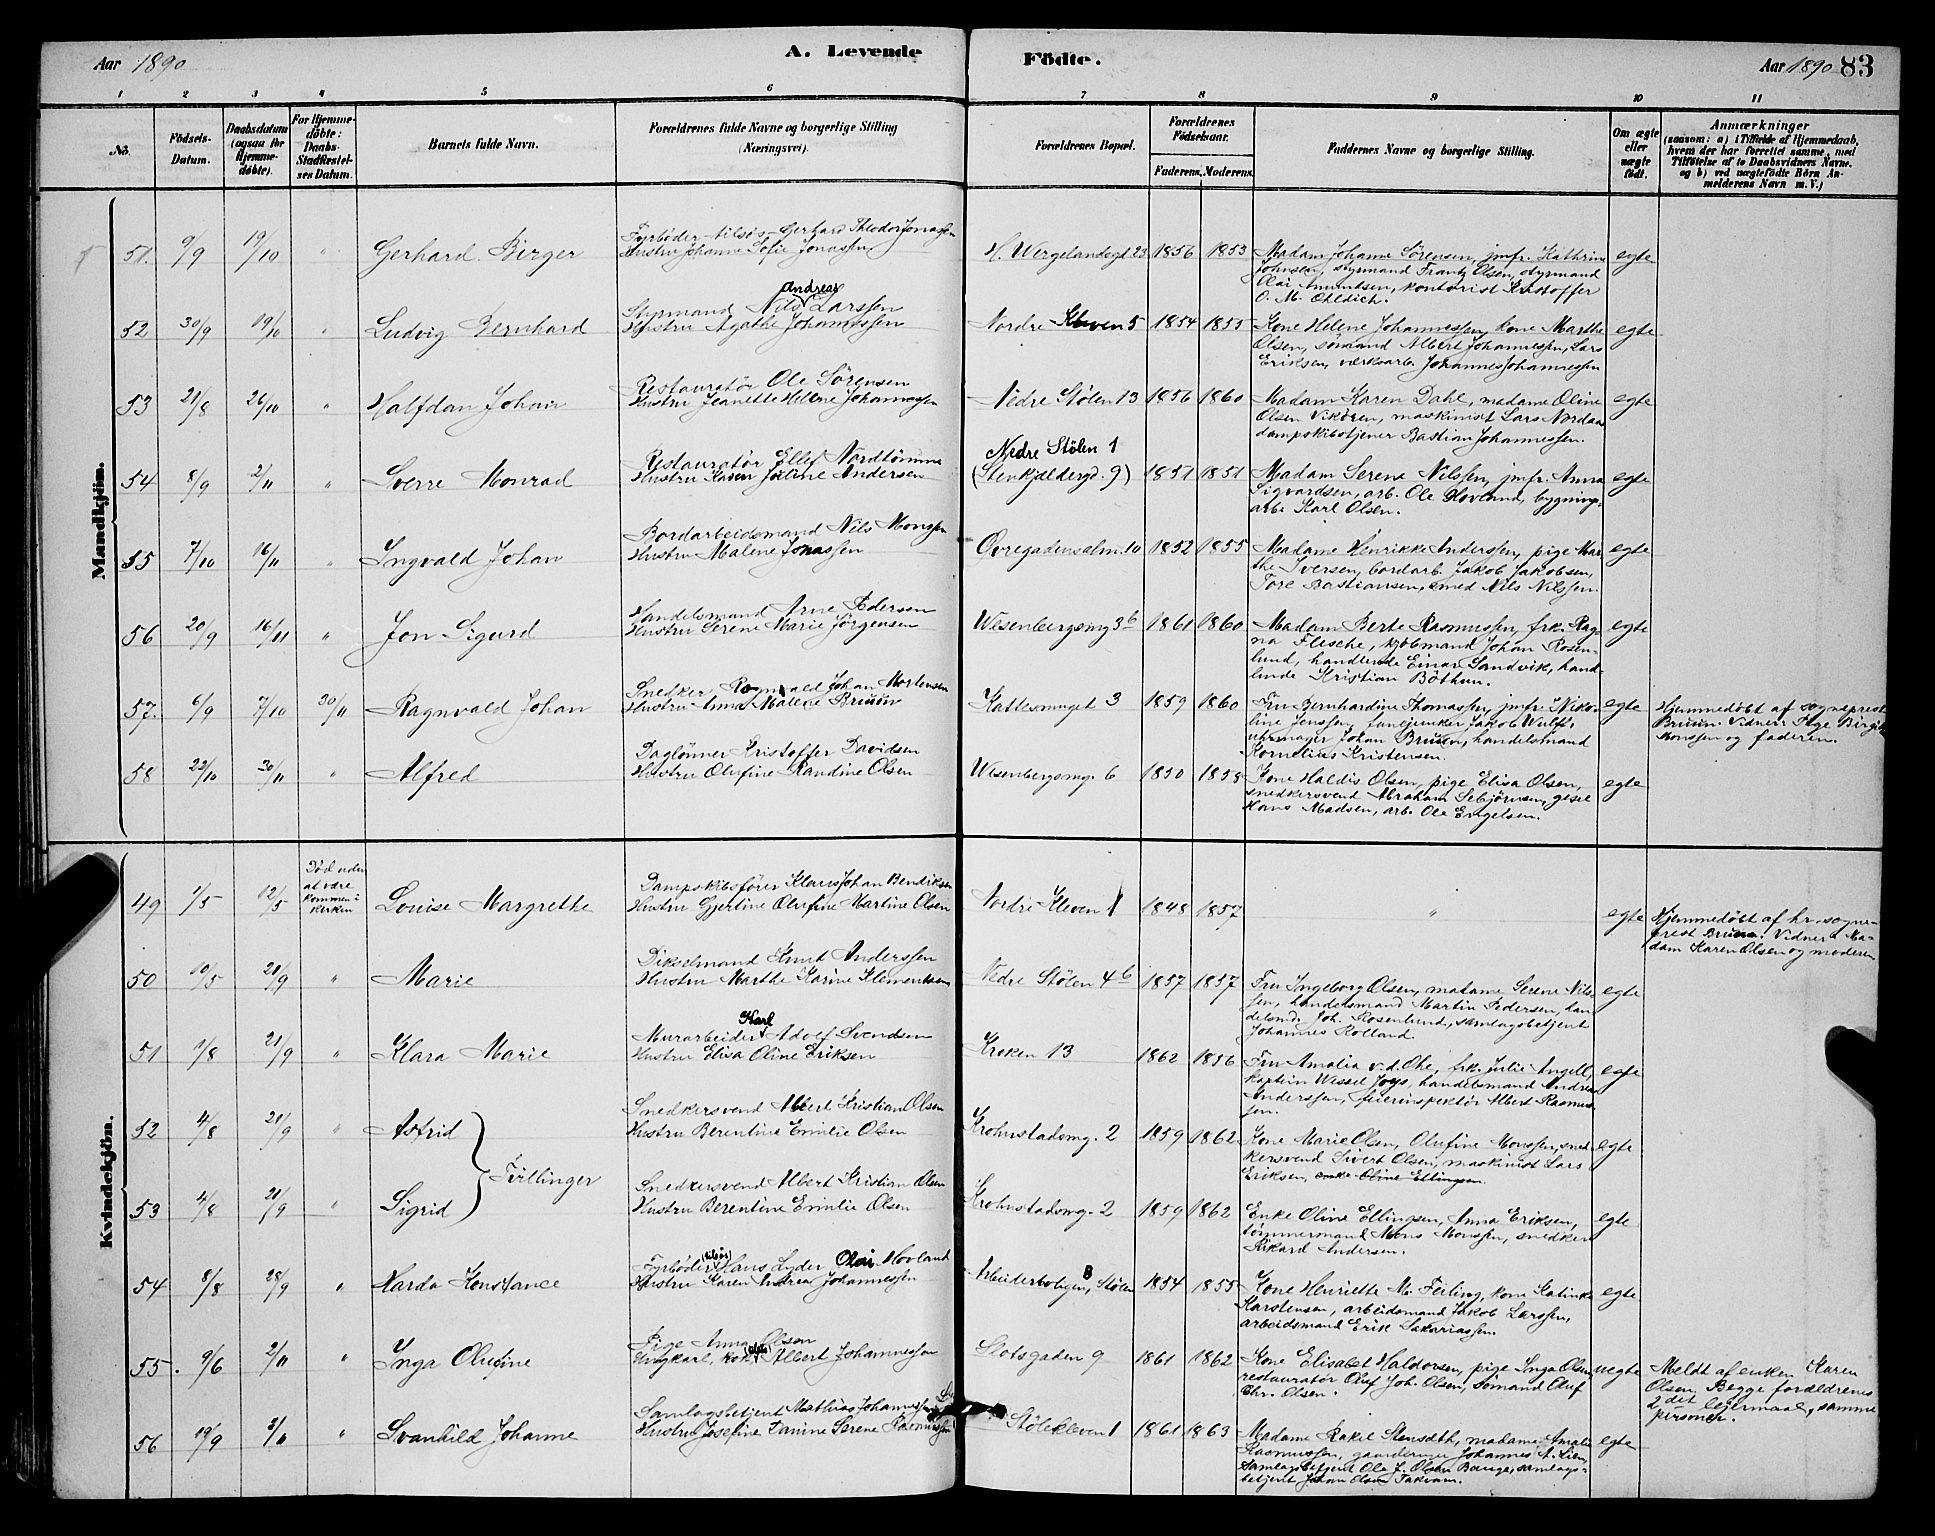 Aar 1890
A. Levende
Födte.
Aar 1890 83
1 2 3 4 5 6 7 8 9 10 11
No.
Födsels-Datum.
Daabsdatum (ogsaa for Hjemme-döbte).
For Hjemme-döbte: Daabs-Stadfæstel-ses Datum.
Barnets fulde Navn.
Forældrenes fulde Navne og borgerlige Stilling (Næringsvei).
Forældrenes Bopæl.
Forældrenes Födselsaar.
Faderens. Moderens.
Faddernes Navne og borgerlige Stilling.
Om ægte eller uægte födt.
Anmærkninger
(saasom: a) i Tilfælde af Hjemmedaab, hvem der har forrettet samme, med Tilföielse af to Daabsvidners Navne. og b) ved uægtefödte Börn An-melderens Navn m. V.)
Mandkjön.
51. 9/9 19/10 " Gerhard Birger
Fyrböder Nilsøs Gerhard Theodor Jonassen
Hustru Johanne Sofie Jonassen
H. Wergelandsgt 23 1856 1853
Madam Johanne Sørensen, jmfr. Kathrine
Johnsen, styrmand Frantz Olsen, styrmand
Olai Amundsen, kontorist Kristoffer
C. M. Ohldich.
egte
52 30/9 19/10 " Ludvig Bernhard
Styrmand Nils Andreas Larssen
Hustru Agathe Johannessen
Nordre Kleven 5 1854 1855
Kone Helene Johannessen, kone Marthe
Olsen, sømand Albert Johannessen, Lars
Eriksen, værksarb. Johannes Johannessen
egte
53 21/8 26/10 " Halfdan Johan
Restauratør Ole Sörensen
Hustru Jeanette Helene Johannessen
Nedre Stølen 13 1856 1860
Madam Karen Dahl, madame Oline
Olsen Vikören, maskinist Lars Nordaas
dampskibstjener Bastian Johannessen.
egte
54 8/9 2/11 " Sverre Monrad
Restauratør Ellef Nordtømme
Hustru Karen Joline Andersen
Nedre Stølen 1
(Stenkjeldergd. 9) 1857 1851
Madam Serene Nilssen, jmfr. Anna
Sigvardsen, arb. Ole Hovland, bygnings-
arb. Karl Olsen.
egte
55 7/10 16/11 " Ingvald Johan
Bordarbeidsmand Nils Monssen
Hustru Malene Jonassen
Øvregadensalm. 10 1852 1855
Madame Henrikke Anderssen, pige Mar-
the Iversen, bordarb. Jakob Jakobsen,
Tore Bastiansen, smed Nils Nilssen.
egte
56 20/9 16/11 " Jon Sigurd
Handelsmand Arne Pedersen
Hustru Serene Marie Jörgensen
Wesenbergsmg 3b 1861 1860
Madam Berte Rasmussen, frk. Rag-
na Flesche, kjøbmand Johan Rosen-
lund, handlende Einar Sandvik, hand-
lende Kristian Böthun.
egte
57. 6/9 7/10 30/11 Ragnvald Johan
Snedker Ragnvald Johan Mortensen
Hustru Anna Malene Bruun
Kattesmuget 3 1859 1860
Fru Bernhardine Thomassen, jmfr. Niko-
line Jenssen, fanejunker Jakob Wulff,
uhrmager Johan Bruun, handelsmand
Kornelius Kristensen.
egte
Hjemmedöbt af sogneprest
Bruun. Vidner: Pige Birgitte
Monssen og faderen.
58 22/10 30/11 " Alfred
Daglönner Kristoffer Davidsen
Hustru Olufine Randine Olsen
Wesenbergsmg. 6 1850 1858
Kone Haldis Olsen, pige Elisa Olsen,
snedkersvend Abraham Sebjörnsen, gesel
Hans Madsen, arb. Ole Engelsen.
egte
Kvindekjön.
49 1/5 12/5
Död uden
at være
kommen i
kirken
Louise Margrethe
Dampskibsfører Klaus Johan Bendiksen
Hustru Gjertine Olufine Martine Olsen
Nordre Kleven 1 1848 1857
"
egte
Hjemmedöbt af hr. sogne-
prest Bruun. Vidner: Ma-
dam Karen Olsen og moderen
50 10/5 21/9 " Marie
Dikselmand Knut Anderssen
Hustru Marthe Karine Klementsen
Nedre Stølen 4b 1857 1857
Fru Ingeborg Olsen, madame Serene Nils-
sen, handelsmand Martin Pedersen, han-
delsmd. Joh. Rosenlund, samlagsbetjent
Johannes Rolland.
egte
51 1/8 21/9 " Klara Marie
Murarbeider Karl Adolf Svendsen
Hustru Elisa Oline Eriksen
Kroken 13 1862 1856
Fru Amalia v. d. Ohe, frk. Julie Angell,
kaptein Wessel Joys, handelsmand Andreas
Anderssen, feierinspektör Albert Rasmus-
sen.
egte
52 4/8 21/9 " Astrid
Snedkersvend Albert Kristian Olsen
Hustru Berentine Emilie Olsen
Krohnstadsmg. 2 1859 1862
Kone Marie Olsen, Olufine Monssen, sned-
kersvend Sivert Olsen, maskinist Lars
Eriksen, enke Oline Ellingsen.
egte
Tvillinger
53 4/8 21/9 " Sigrid
Snedkersvend Albert Kristian Olsen
Hustru Berentine Emilie Olsen
Krohnstadsmg. 2 1859 1862
Enke Oline Ellingsen, Anna Eriksen,
tömmermand Mons Monssen, snedker
Rikard Andersen.
egte
54 8/8 28/9 " Narda Konstance
Fyrböder (tilsös) Hans Lyder Olai Hovland
Hustru Karen Andrea Johannessen
Arbeiderboligen B, Stølen 1854 1855
Kone Henriette M. Feiling, kone Katinka
Karstensen, arbeidsmand Jakob Larssen,
arbeidsmand Erik Sakariassen.
egte
55. 9/6 2/11 " Inga Olufine
Pige Anna Olsen
Ungkarl, kok Albert Johannessen
Slotsgaden 9 1861 1862
Kone Elisabet Haldorsen, pige Inga Olsen,
restauratør Oluf Joh. Olsen, sömand Oluf
Chr. Olsen.
uegte
Meldt af enken Karen
Olsen, Begge forældrenes
2det leiermaal, samme
personer.
56 19/9 2/11 " Svanhild Johanne
Samlagsbetjent Mathias Johannessen
Hustru Josefine Tanine Serene Rasmussen
Stølekleven 1 1861 1863
Madame Rakel Stensæth, madame Amalie
Rasmussen, gaardmand Johannes A. Lien,
samlagsbetjent Ole J. Olsen Bauge, samlags-
betjent Johan Olsen Takvam.
egte